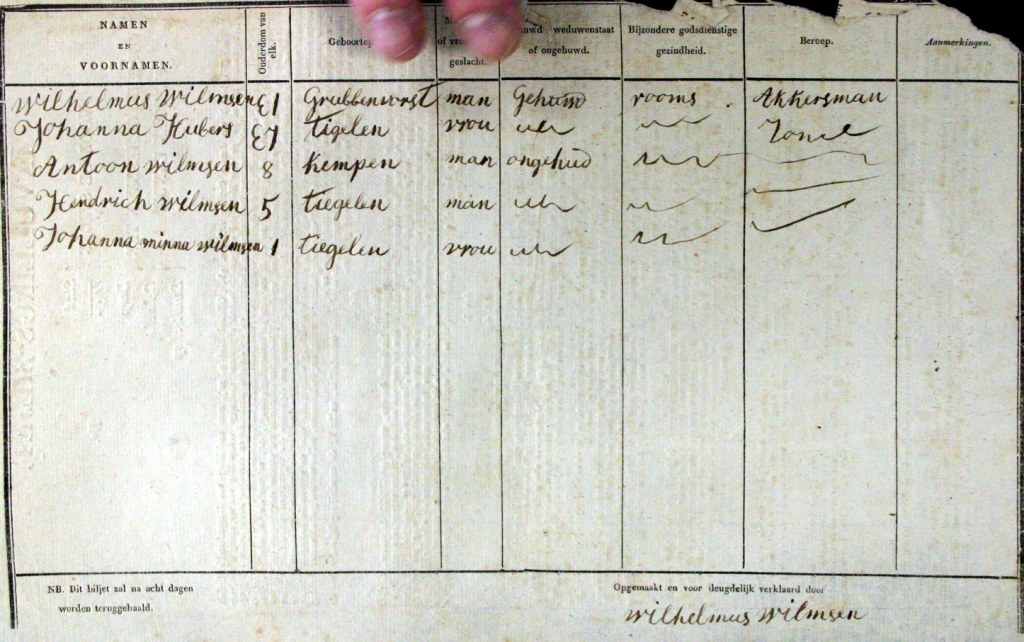 NAMEN EN VOORNAMEN. Ouderdom van elk. geslacht. weduwenstaat of ongehuwd. Bijzondere godsdienstige gezindheid. Beroep. Aanmerkingen.
Wilhelmus Wilmsen 31 Grubbenvorst man Gehuwd rooms Akkersman
Johanna Hubers 37 tigelen vrou
Antoon wilmsen 8 kempen man ongehud
Hendrich wilmsen 5 tiegelen man
Johanna minna wilmsen 1 tiegelen vrou
NB. Dit biljet zal na acht dagen
worden teruggehaald.
Opgemaakt en voor deugdelijk verklaard door
wilhelmus wilmsen